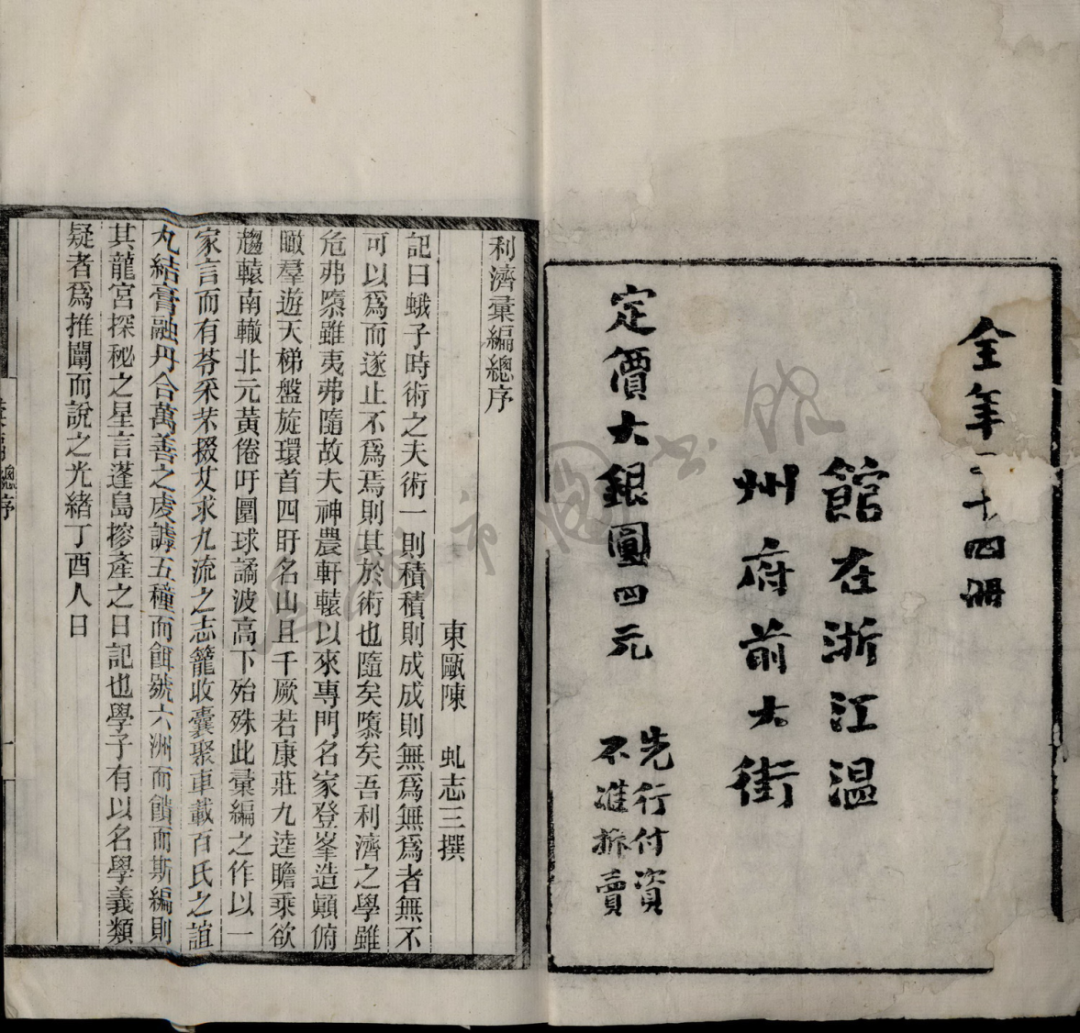 全年二十四冊
館在浙江温
州府前大街
定價大銀圓四元
先行付資
不準拆賣
利濟彙編總序
東甌陳 虬志三撰
記曰蛾子時術之夫術一則積積則成成則無爲無爲者無不
可以爲而遂止不爲焉則其於術也隨矣隳矣吾利濟之學雖
危弗隳雖夷弗隨故夫神農軒轅以來專門名家登峯造顚俯
瞰羣遊天梯盤旋環首四盱名山且千厥若康莊九逵瞻乘欲
趨轅南轍北元黃倦吁圜球譎波高下殆殊此彙編之作以一
家言而有苓采芣掇艾求九流之志籠收囊聚車載百氏之誼
丸結膏融丹合萬善之虔譸五種而餌號六洲而饋而斯編則
其龍宮探秘之星言蓬島摻產之日記也學子有以名學義類
疑者爲推闡而說之光緒丁酉人日
總序
一
市圖書館